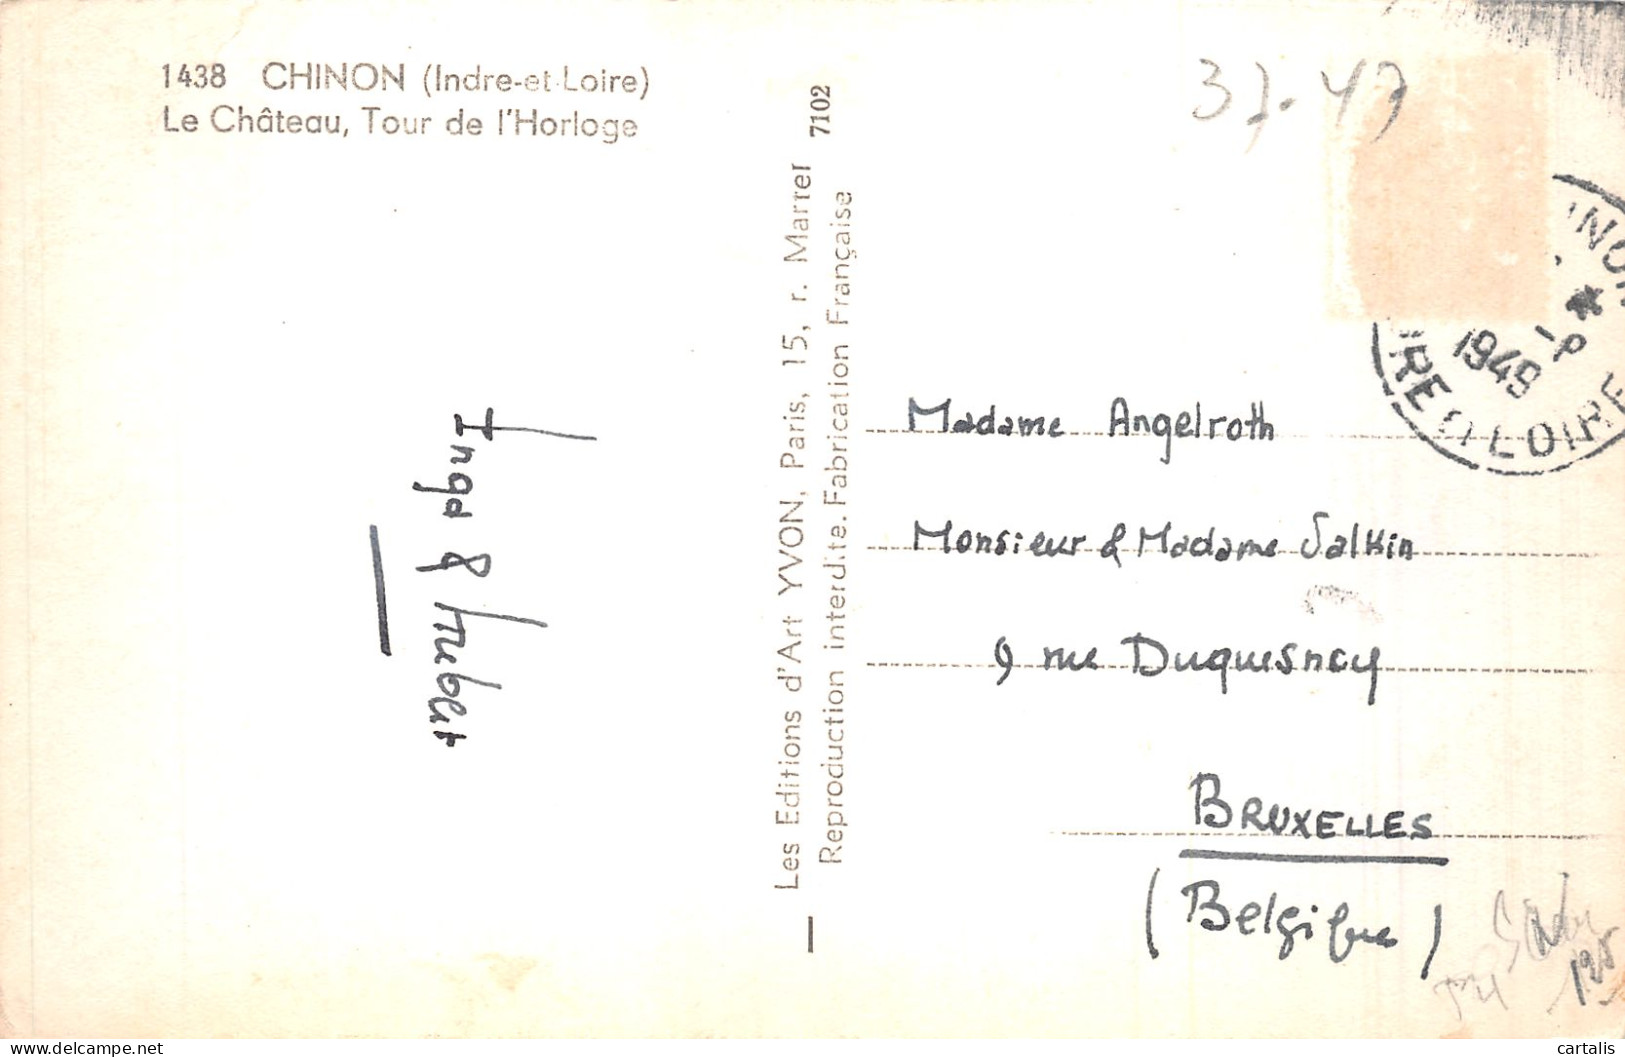 1438 CHINON (Indre-et-Loire)
Le Château, Tour de l'Horloge
Inga & Hubert
Les Editions d'Art YVON, Paris, 15, r. Martel
7102
Reproduction interdite. Fabrication Française
37.47
INON
1949
RE ET LOIRE
Madame Angelroth
Monsieur & Madame Salkin
9 rue Duquesnoy
BRUXELLES
(Belgique)
125
delcampe.net
cartalis